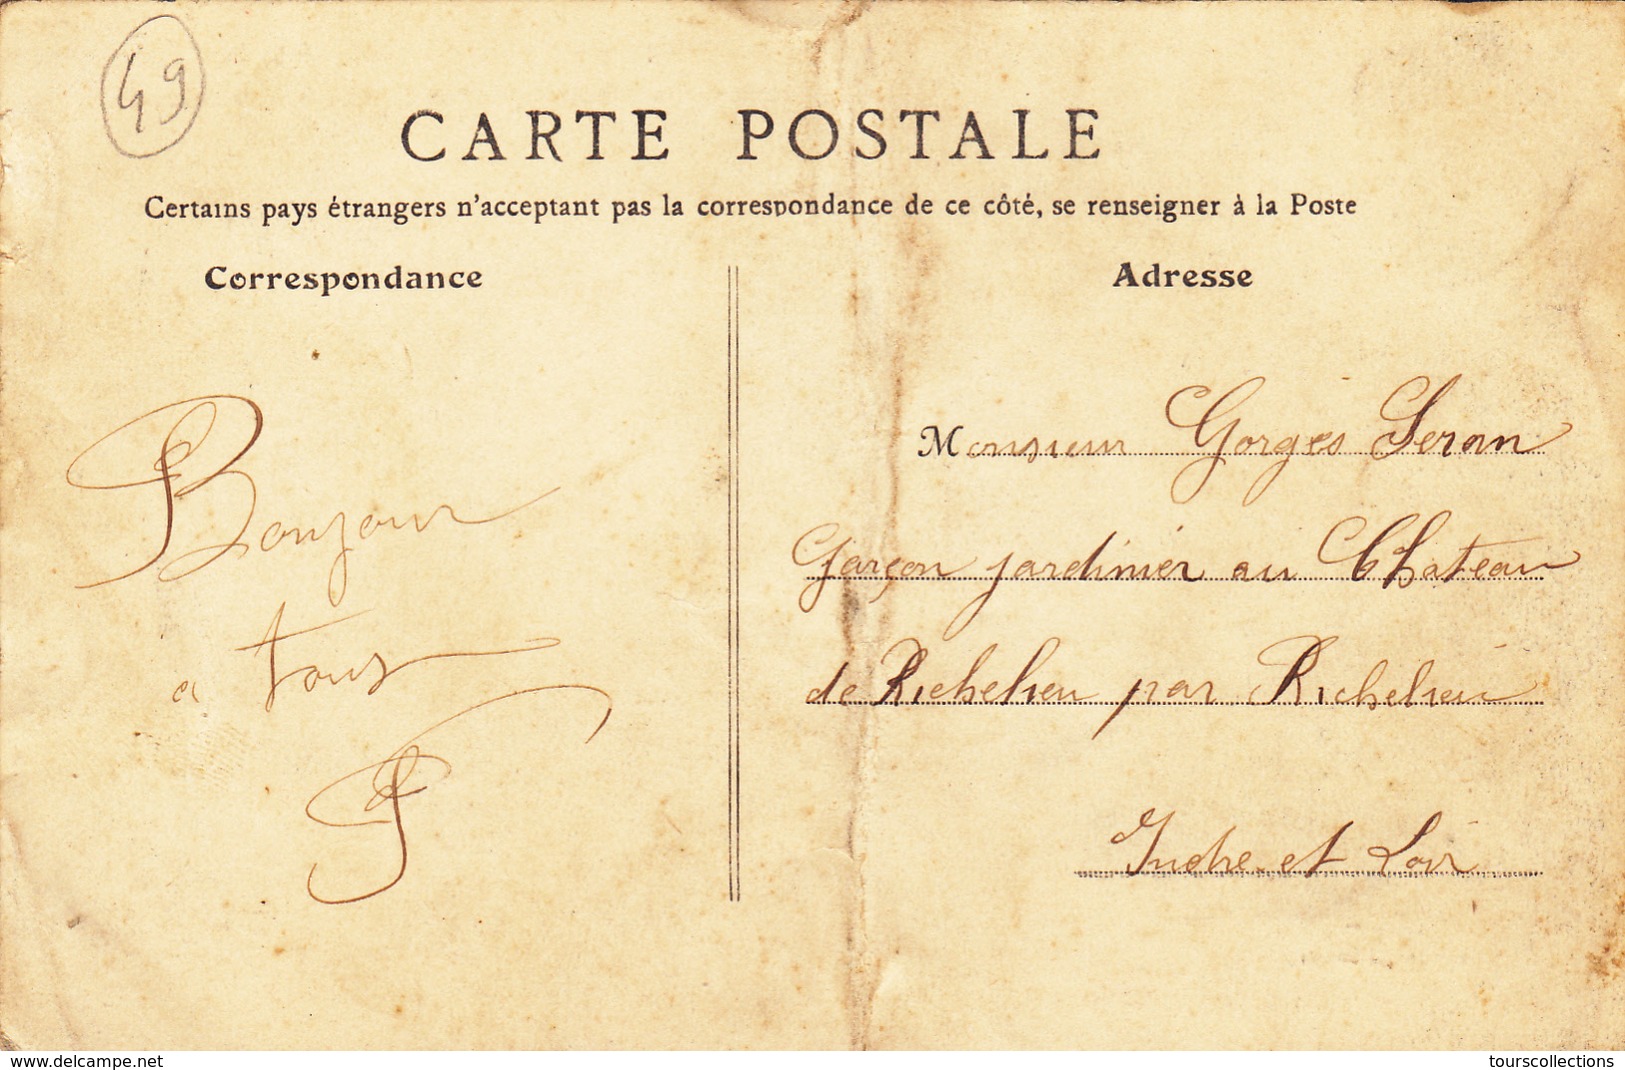 49
CARTE POSTALE
Certains pays étrangers n'acceptant pas la correspondance de ce côté, se renseigner à la Poste
Correspondance
Bonjour
a tous
Adresse
Monsieur Gorges Seron
Garçon jardinier au Chateau
de Richelieu par Richelieu
Indre et Loir
www.delcampe.net
tourscollections